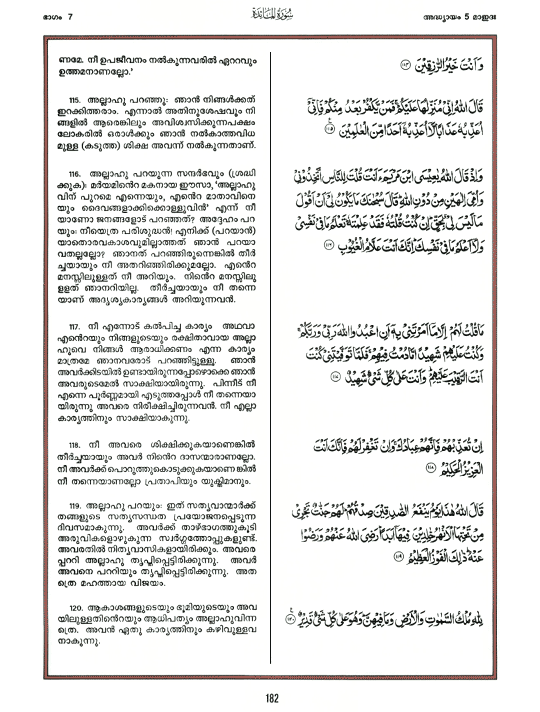 ഭാഗം 7
سُورَةُ المَائِدَة
അദ്ധ്യായം 5 മാഇദഃ
ണമേ. നീ ഉപജീവനം നൽകുന്നവരിൽ ഏററവും
ഉത്തമനാണല്ലോ.'
115. അല്ലാഹു പറഞ്ഞു: ഞാൻ നിങ്ങൾക്കത്
ഇറക്കിത്തരാം. എന്നാൽ അതിനുശേഷവും നി
ങ്ങളിൽ ആരെങ്കിലും അവിശ്വസിക്കുന്നപക്ഷം
ലോകരിൽ ഒരാൾക്കും ഞാൻ നൽകാത്തവിധ
മുള്ള (കടുത്ത) ശിക്ഷ അവന് നൽകുന്നതാണ്.
116. അല്ലാഹു പറയുന്ന സന്ദർഭവും (ശ്രദ്ധി
ക്കുക): മർയമിൻെറ മകനായ ഈസാ, 'അല്ലാഹു
വിന് പുറമെ എന്നെയും, എൻെറ മാതാവിനെ
യും ദൈവങ്ങളാക്കിക്കൊള്ളുവിൻ' എന്ന് നീ
യാണോ ജനങ്ങളോട് പറഞ്ഞത്? അദ്ദേഹം പറ
യും: നീയെത്ര പരിശുദ്ധൻ! എനിക്ക് (പറയാൻ)
യാതൊരവകാശവുമില്ലാത്തത് ഞാൻ പറയാ
വതല്ലല്ലോ? ഞാനത് പറഞ്ഞിരുന്നെങ്കിൽ തീർ
ച്ചയായും നീ അതറിഞ്ഞിരിക്കുമല്ലോ. എൻെറ
മനസ്സിലുള്ളത് നീ അറിയും. നിൻെറ മനസ്സിലു
ളളത് ഞാനറിയില്ല. തീർച്ചയായും നീ തന്നെ
യാണ് അദൃശ്യകാര്യങ്ങൾ അറിയുന്നവൻ.
117. നീ എന്നോട് കൽപിച്ച കാര്യം അഥവാ
എൻെറയും നിങ്ങളുടെയും രക്ഷിതാവായ അല്ലാ
ഹുവെ നിങ്ങൾ ആരാധിക്കണം എന്ന കാര്യം
മാത്രമേ ഞാനവരോട് പറഞ്ഞിട്ടുള്ളൂ. ഞാൻ
അവർക്കിടയിൽ ഉണ്ടായിരുന്നപ്പോഴൊക്കെ ഞാൻ
അവരുടെമേൽ സാക്ഷിയായിരുന്നു. പിന്നീട് നീ
എന്നെ പൂർണ്ണമായി എടുത്തപ്പോൾ നീ തന്നെയാ
യിരുന്നു അവരെ നിരീക്ഷിച്ചിരുന്നവൻ. നീ എല്ലാ
കാര്യത്തിനും സാക്ഷിയാകുന്നു.
118. നീ അവരെ ശിക്ഷിക്കുകയാണെങ്കിൽ
തീർച്ചയായും അവർ നിൻെറ ദാസന്മാരാണല്ലോ.
നീ അവർക്ക് പൊറുത്തുകൊടുക്കുകയാണെങ്കിൽ
നീ തന്നെയാണല്ലോ പ്രതാപിയും യുക്തിമാനും.
119. അല്ലാഹു പറയും: ഇത് സത്യവാന്മാർക്ക്
തങ്ങളുടെ സത്യസന്ധത പ്രയോജനപ്പെടുന്ന
ദിവസമാകുന്നു. അവർക്ക് താഴ്ഭാഗത്തുകൂടി
അരുവികളൊഴുകുന്ന സ്വർഗ്ഗത്തോപ്പുകളുണ്ട്.
അവരതിൽ നിത്യവാസികളായിരിക്കും. അവരെ
പ്പററി അല്ലാഹു തൃപ്തിപ്പെട്ടിരിക്കുന്നു. അവർ
അവനെ പററിയും തൃപ്തിപ്പെട്ടിരിക്കുന്നു. അത
ത്രെ മഹത്തായ വിജയം.
120. ആകാശങ്ങളുടെയും ഭൂമിയുടെയും അവ
യിലുള്ളതിൻെറയും ആധിപത്യം അല്ലാഹുവിന്ന
ത്രെ. അവൻ ഏതു കാര്യത്തിനും കഴിവുള്ളവ
നാകുന്നു.
وَأَنتَ خَيْرُ الرَّزِقِينَ ١١٤
قَالَ اللَّهُ إِنِّي مُنَزِّلُهَا عَلَيْكُمْ فَمَن يَكْفُرْ بَعْدُ مِنكُمْ فَإِنِّي
أُعَذِّبُهُ عَذَابًا لَّا أُعَذِّبُهُ أَحَدًا مِّنَ الْعَلَمِينَ ١١٥
وَإِذْ قَالَ اللَّهُ يَعِيسَى ابْنَ مَرْيَمَ ءَأَنتَ قُلْتَ لِلنَّاسِ اتَّخِذُونِي
وَأُمِّيَ إِلَهَيْنِ مِن دُونِ اللَّهِ قَالَ سُبْحَنَكَ مَا يَكُونُ لِي أَنْ أَقُولَ
مَا لَيْسَ لِي بِحَقٍّ إِن كُنتُ قُلْتُهُ فَقَدْ عَلِمْتَهُ تَعْلَمُ مَا فِي نَفْسِي
وَلَا أَعْلَمُ مَا فِي نَفْسِكَ إِنَّكَ أَنتَ عَلَّمُ الْغُيُوبِ ١١٦
مَا قُلْتُ لَهُمْ إِلَّا مَا أَمَرْتَنِي بِهِ أَنِ اعْبُدُوا اللَّهَ رَبِّي وَرَبَّكُمْ
وَكُنتُ عَلَيْهِمْ شَهِيدًا مَّا دُمْتُ فِيهِمْ فَلَمَّا تَوَفَّيْتَنِي كُنتَ
أَنتَ الرَّقِيبَ عَلَيْهِمْ وَأَنتَ عَلَى كُلِّ شَيْءٍ شَهِيدٌ ١١٧
إِن تُعَذِّبْهُمْ فَإِنَّهُمْ عِبَادُكَ وَإِن تَغْفِرْ لَهُمْ فَإِنَّكَ أَنتَ
الْعَزِيزُ الْحَكِيمُ ١١٨
قَالَ اللَّهُ هَذَا يَوْمُ يَنفَعُ الصَّدِقِينَ صِدْقُهُمْ لَهُمْ جَنَّتٌ تَجْرِي
مِن تَحْتِهَا الْأَنْهَرُ خَلِدِينَ فِيهَا أَبَدًا رَّضِيَ اللَّهُ عَنْهُمْ وَرَضُوا
عَنْهُ ذَلِكَ الْفَوْزُ الْعَظِيمُ ١١٩
لِلَّهِ مُلْكُ السَّمَوَتِ وَالْأَرْضِ وَمَا فِيهِنَّ وَهُوَ عَلَى كُلِّ شَيْءٍ قَدِيرٌ ١٢٠
182